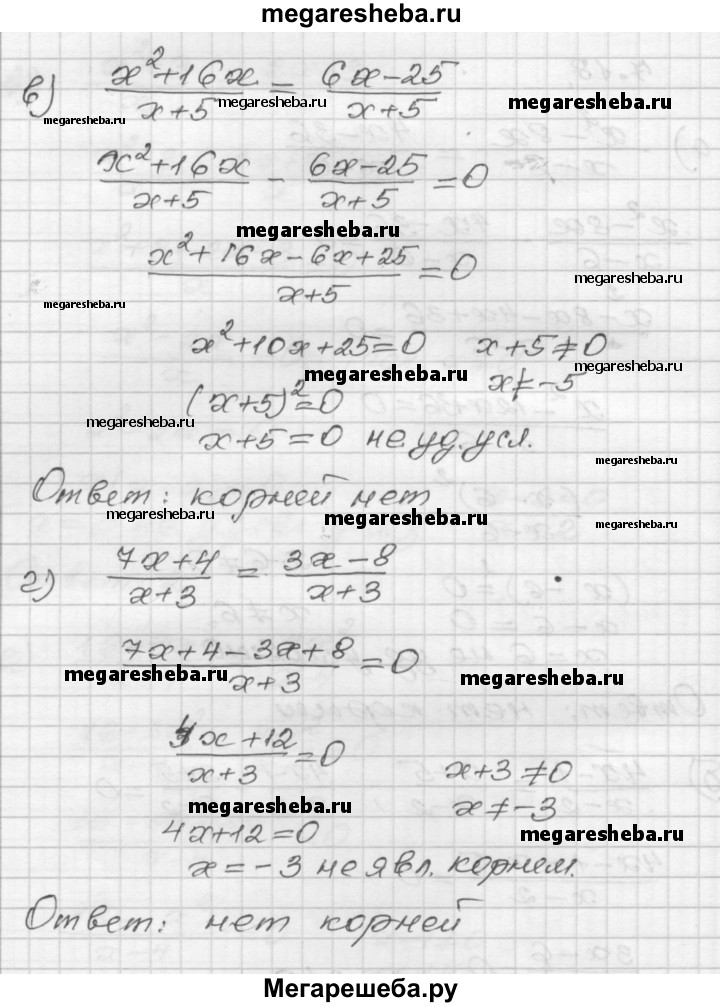 megaresheba.ru
в) (x²+16x)/(x+5) = (6x-25)/(x+5)
megaresheba.ru megaresheba.ru megaresheba.ru megaresheba.ru
(x²+16x)/(x+5) - (6x-25)/(x+5) = 0
megaresheba.ru megaresheba.ru
(x²+16x-6x+25)/(x+5) = 0
megaresheba.ru megaresheba.ru
x²+10x+25=0 x+5≠0
megaresheba.ru megaresheba.ru
x≠-5
(x+5)²=0
megaresheba.ru
x+5=0 не уд. усл.
megaresheba.ru
Ответ: корней нет
megaresheba.ru megaresheba.ru megaresheba.ru
г) (7x+4)/(x+3) = (3x-8)/(x+3)
(7x+4-3x+8)/(x+3) = 0
megaresheba.ru megaresheba.ru
(4x+12)/(x+3) = 0 x+3≠0
megaresheba.ru x≠-3
megaresheba.ru
4x+12=0
x=-3 не явл. корнем.
Ответ: нет корней
Мегарешеба.ру